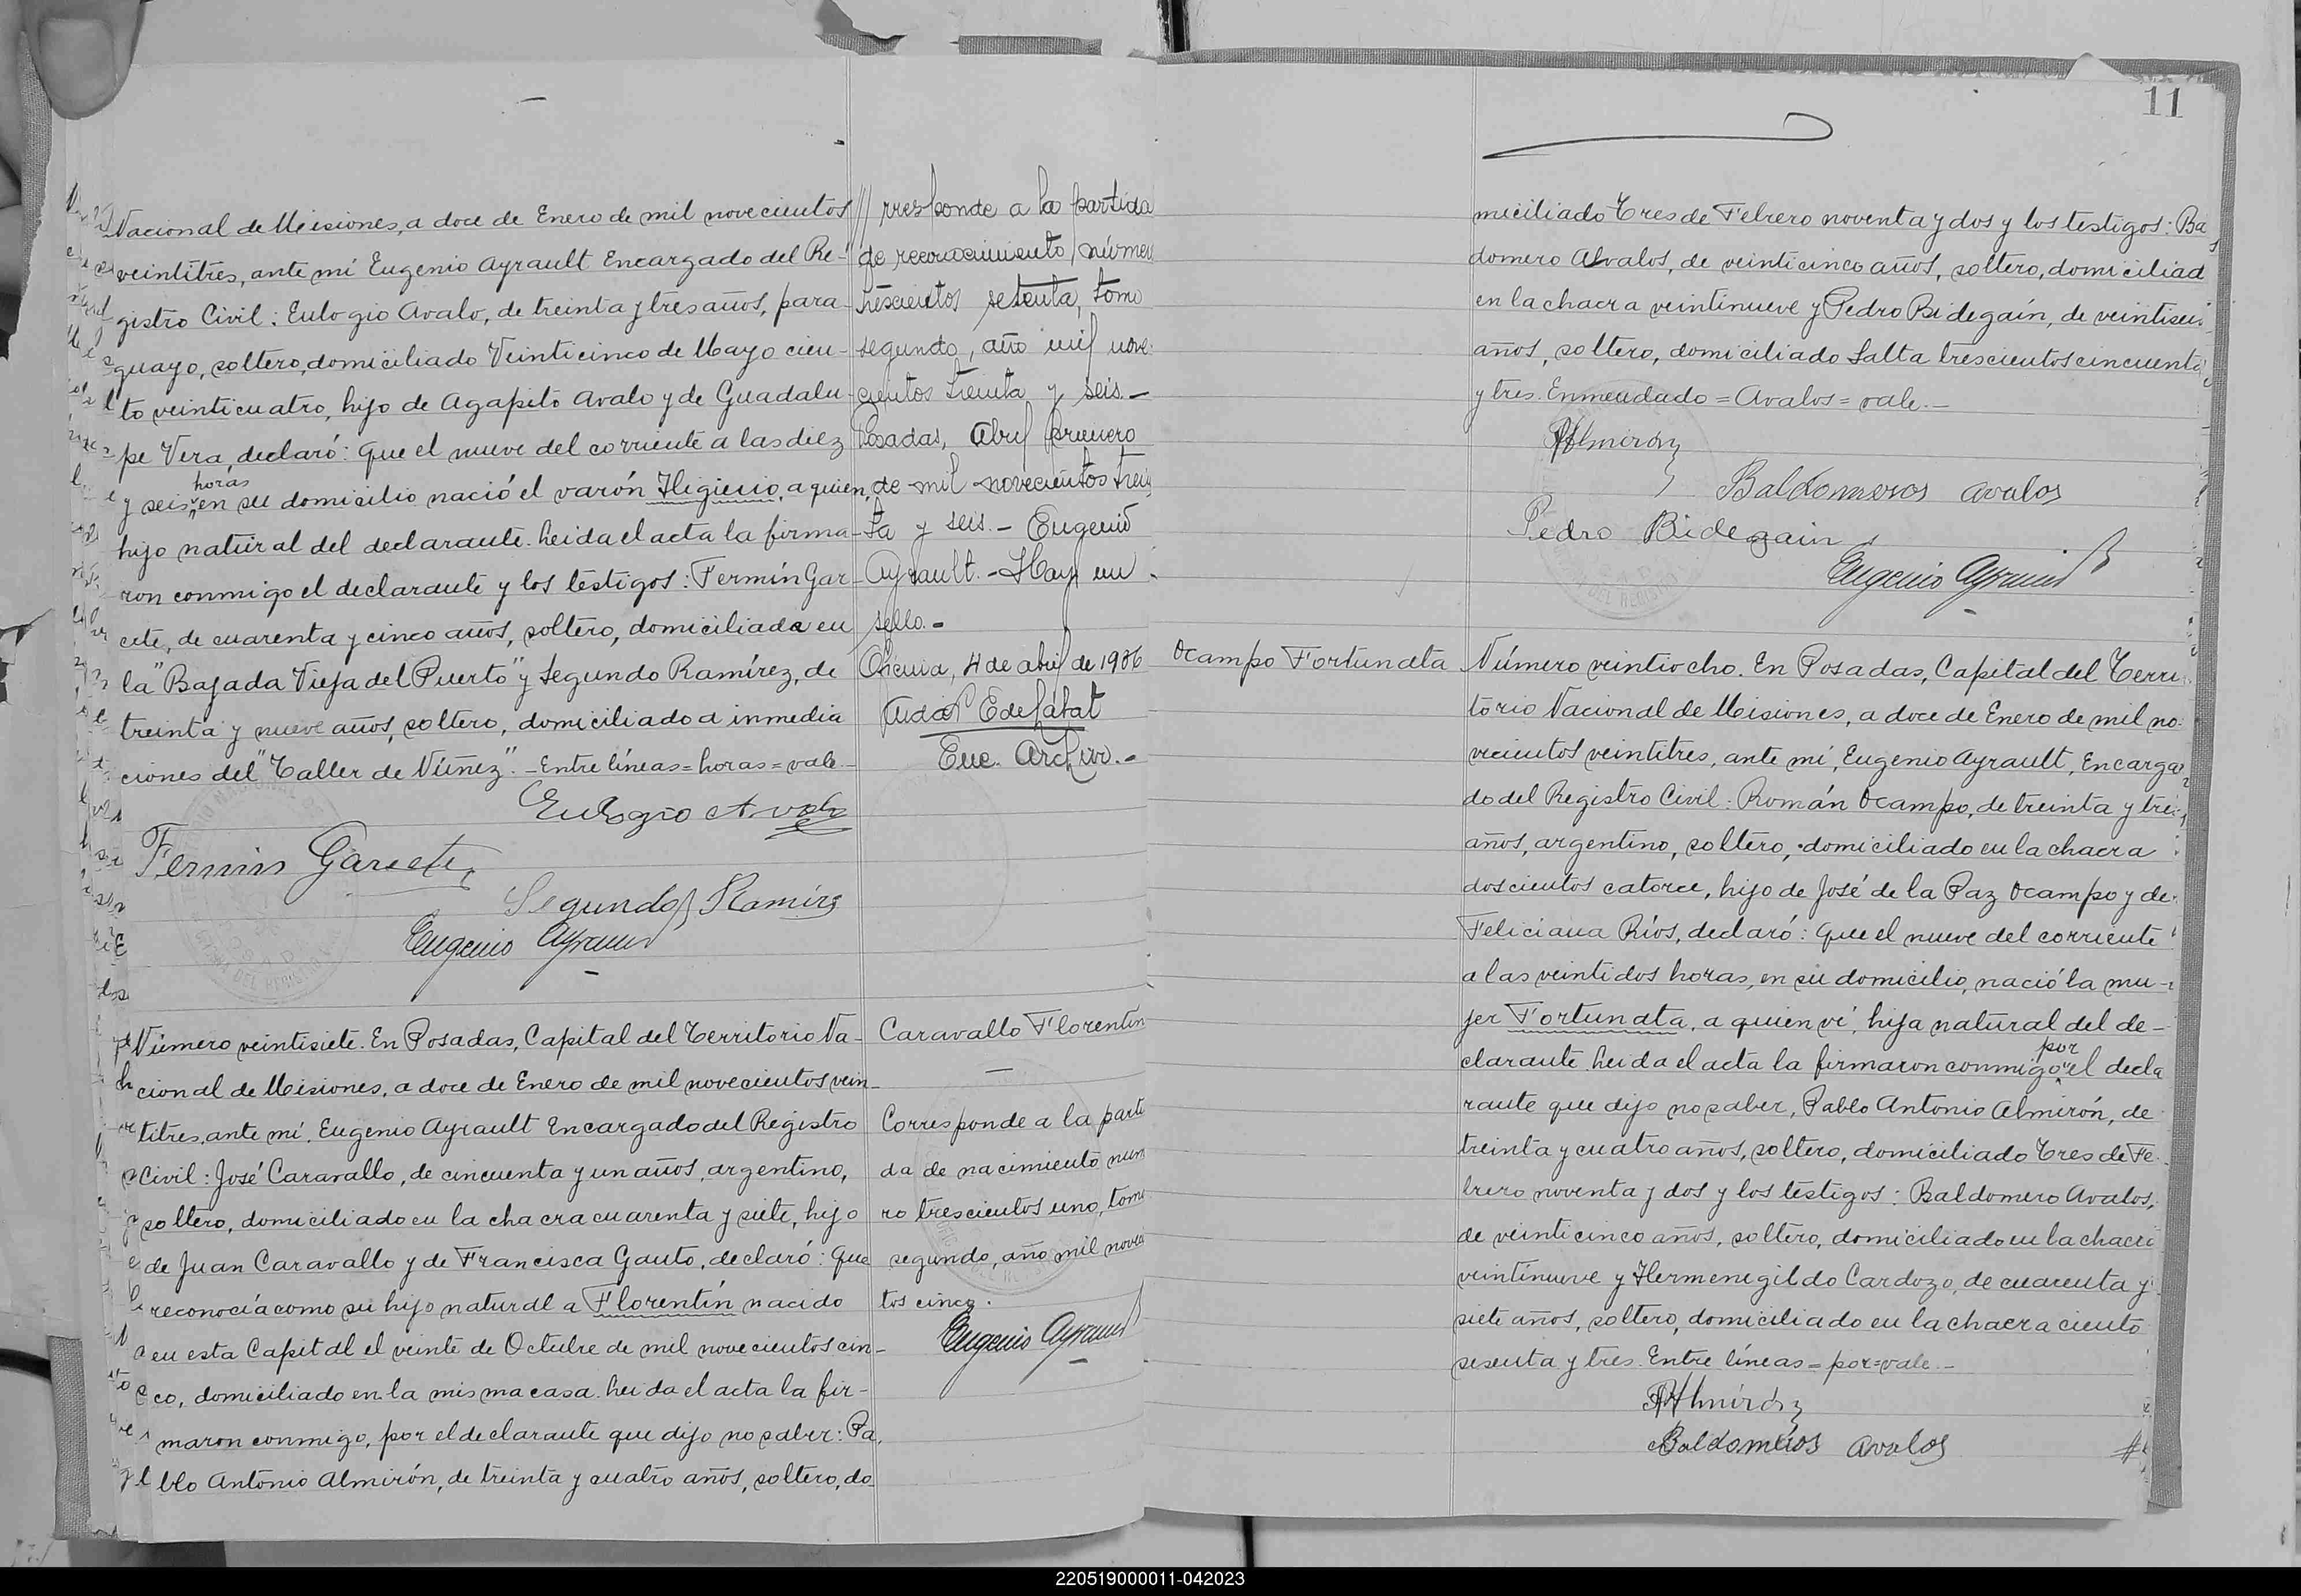 Nacional de Misiones, a doce de Enero de mil novecientos
veintitres, ante mí Eugenio Ayrault Encargado del Re-
gistro Civil: Eulogio Avalo, de treinta y tres años, para-
guayo, soltero, domiciliado Veinticinco de Mayo cien-
to veinticuatro, hijo de Agapito Avalo y de Guadalu-
pe Vera, declaró: Que el nueve del corriente a las diez
horas
y seis, en su domicilio nació el varón Higinio, a quien,
hijo natural del declarante. Leida el acta la firma-
ron conmigo el declarante y los testigos: Fermín Gar-
cete, de cuarenta y cinco años, soltero, domiciliado en
la "Bajada Vieja del Puerto" y Segundo Ramírez, de
treinta y nueve años, soltero, domiciliado a inmedia
ciones del "Taller de Núñez". - Entre líneas = horas = vale -
Eulogio Avalo
Fermin Garcete
Segundo Ramírez
Eugenio Ayrault
Número veintisiete. En Posadas, Capital del Territorio Na-
cional de Misiones, a doce de Enero de mil novecientos vein-
titres, ante mí, Eugenio Ayrault Encargado del Registro
Civil: José Caravallo, de cincuenta y un años, argentino,
soltero, domiciliado en la chacra cuarenta y siete, hijo
de Juan Caravallo y de Francisca Gauto, declaró: Que
reconocía como su hijo natural a Florentín nacido
en esta Capital el veinte de Octubre de mil novecientos cin-
co, domiciliado en la misma casa. Leida el acta la fir-
maron conmigo, por el declarante que dijo no saber: Pa
blo Antonio Almirón, de treinta y cuatro años, soltero, do-
/// rresponde a la partida
de reconocimiento, núme
trescientos setenta, tomo
segundo, año mil nove-
cientos treinta y seis. -
Posadas, Abril primero
de mil novecientos trein
ta y seis. - Eugenio
Ayrault. - Hay un
sello. -
Oficina, 4 de abril de 1936
Enc. Archivo. -
Caravallo Florentín
—
Corresponde a la parti
da de nacimiento núm
ro trescientos uno, tomo
segundo, año mil novecien
tos cinco.
Eugenio Ayrault
11
miciliado Tres de Febrero noventa y dos y los testigos: Ba
domero Avalos, de veinticinco años, soltero, domiciliad
en la chacra veintinueve y Pedro Bidegaín, de veintiseis
años, soltero, domiciliado Salta trescientos cincuenta
y tres. Enmendado = Avalos = vale. -
PAlmirón
Baldomeros Avalos
Pedro Bidegain
Eugenio Ayrault
Ocampo Fortunata
Número veintiocho. En Posadas, Capital del Terri
torio Nacional de Misiones, a doce de Enero de mil no-
vecientos veintitres, ante mí, Eugenio Ayrault, Encarga
do del Registro Civil: Román Ocampo, de treinta y tres
años, argentino, soltero, domiciliado en la chacra
doscientos catorce, hijo de José de la Paz Ocampo y de
Feliciana Ríos, declaró: Que el nueve del corriente
a las veintidos horas, en su domicilio, nació la mu-
jer Fortunata, a quien ví, hija natural del de-
por
clarante. Leida el acta la firmaron conmigo el decla
rante que dijo no saber, Pablo Antonio Almirón, de
treinta y cuatro años, soltero, domiciliado Tres de Fe-
brero noventa y dos y los testigos: Baldomero Avalos,
de veinticinco años, soltero, domiciliado en la chacra
veintinueve y Hermenegildo Cardozo, de cuarenta y
siete años, soltero, domiciliado en la chacra ciento
sesenta y tres. Entre líneas = por = vale. -
PAlmirón
Baldomeros Avalos
220519000011-042023